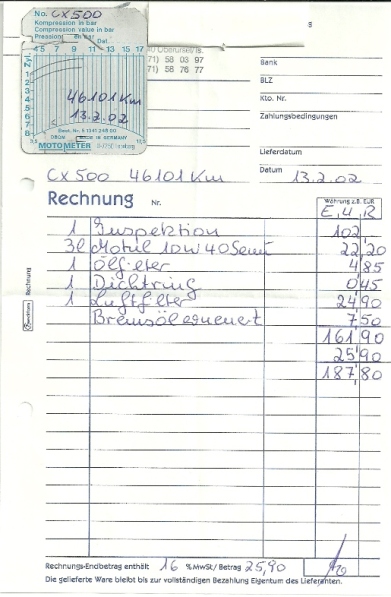 No. CX500
Kompression in bar
Compression value in bar
Pression en bar Dat.
4 5 6 7 8 9 10 11 12 13 14 15 16 17
Zyl.
1
2
3
4
5
6
7
8
46101 Km
13.2.02
DBGM MADE IN GERMANY
MOTOMETER
71) 58 03 97
71) 58 76 77
Bank
BLZ
Kto. Nr.
Zahlungsbedingungen
Lieferdatum
Datum 13.2.02
CX 500 46101 Km
Rechnung Nr.
Währung z.B. EUR
E, U, R
1 Inspektion 102,
3l Motul 10W40 Semi 22,20
1 Ölfilter 4,85
1 Dichtring 0,45
1 Luftfilter 24,90
Bremsöl erneuert 7,50
161,90
25,90
187,80
Rechnung
Rechnungs-Endbetrag enthält 16 % MwSt/ Betrag 25,90
Die gelieferte Ware bleibt bis zur vollständigen Bezahlung Eigentum des Lieferanten.